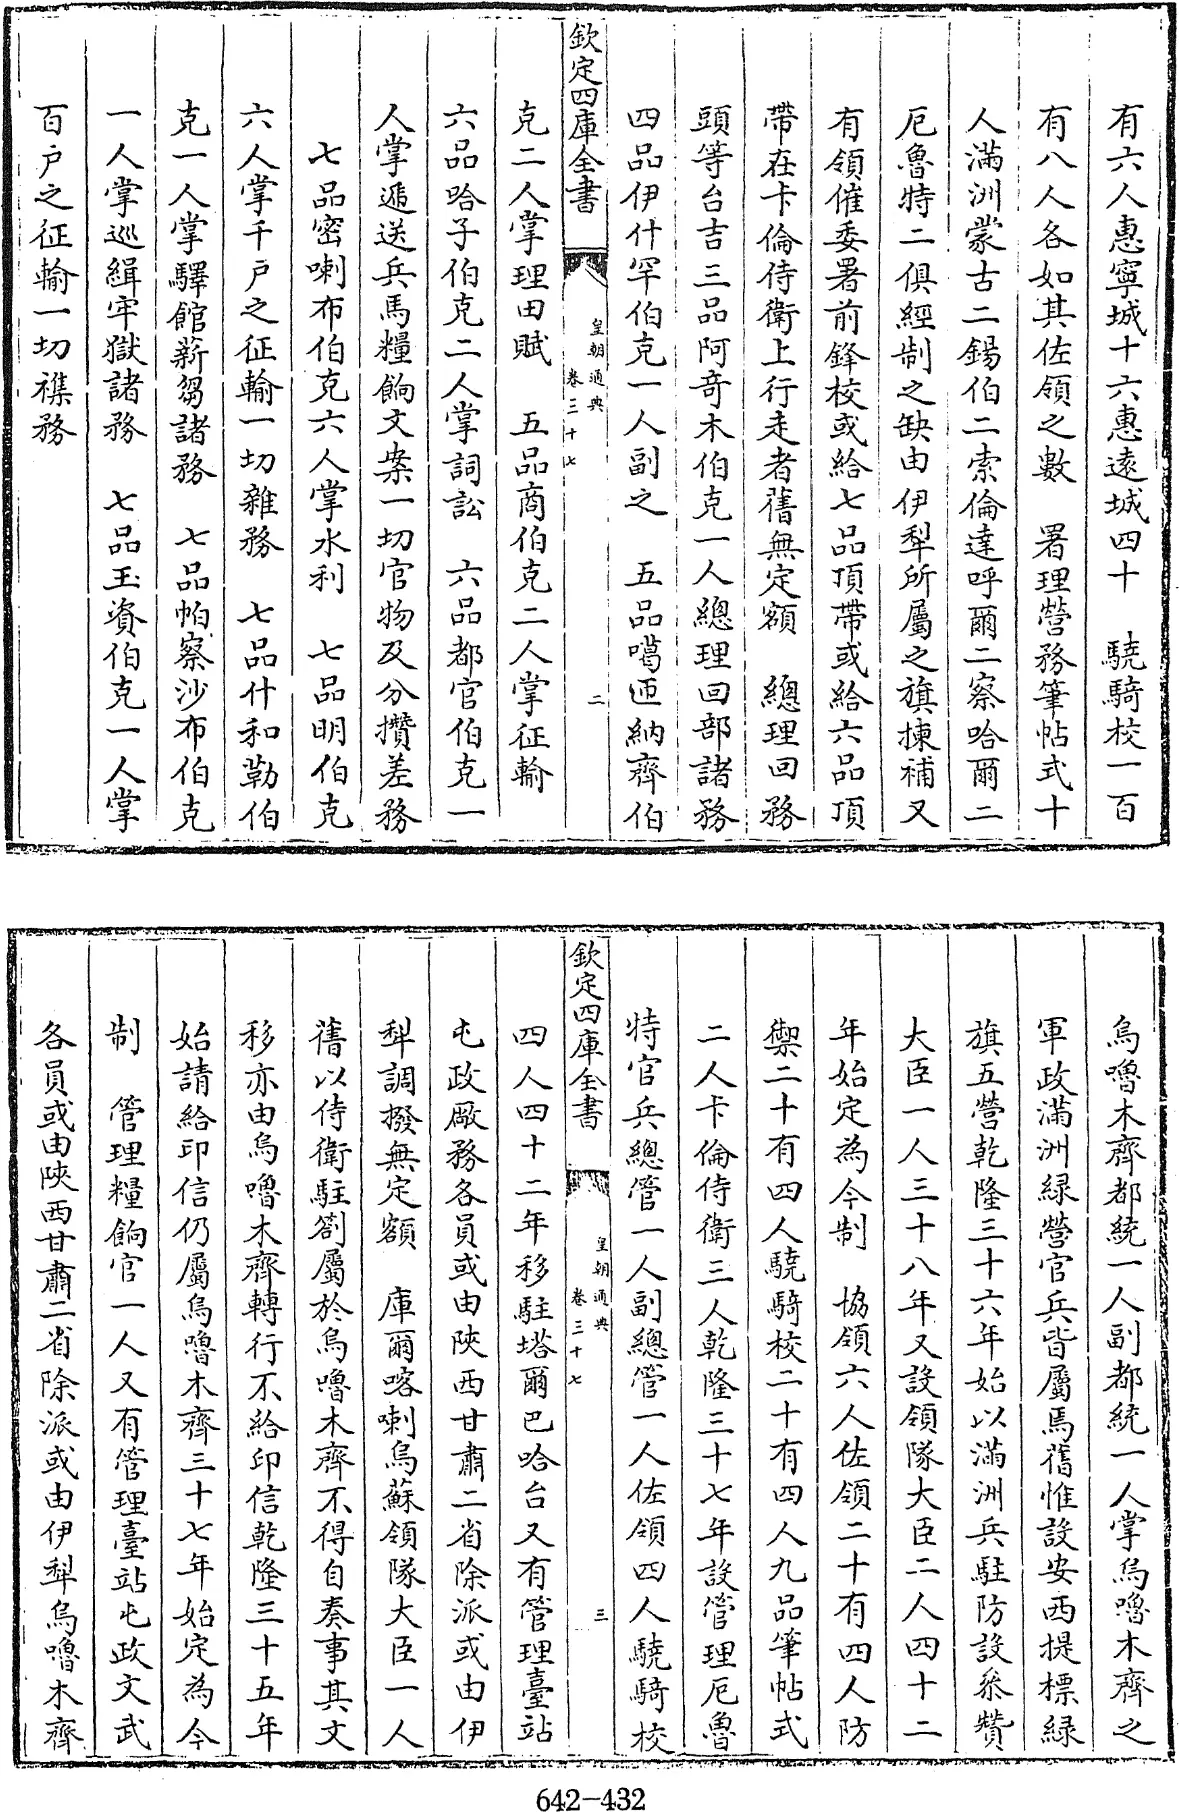 有六人惠寧城十六惠遠城四十　驍騎校一百
有八人各如其佐領之數　署理營務筆帖式十
人滿洲蒙古二錫伯二索倫達呼爾二察哈爾二
厄魯特二俱經制之缺由伊犂所屬之旗揀補又
有領催委署前鋒校或給七品頂帶或給六品頂
帶在卡倫侍衛上行走者舊無定額　總理回務
頭等台吉三品阿奇木伯克一人總理回部諸務
四品伊什罕伯克一人副之　五品噶匝納齊伯
欽定四庫全書
皇朝通典
卷三十七
二
克二人掌理田賦　五品商伯克二人掌征輸
六品哈子伯克二人掌詞訟　六品都官伯克一
人掌遞送兵馬糧餉文案一切官物及分攢差務
七品密喇布伯克六人掌水利　七品明伯克
六人掌千戶之征輸一切雜務　七品什和勒伯
克一人掌驛館薪芻諸務　七品帕察沙布伯克
一人掌巡緝牢獄諸務　七品玉資伯克一人掌
百戶之征輸一切襍務
烏嚕木齊都統一人副都統一人掌烏嚕木齊之
軍政滿洲緑營官兵皆屬焉舊惟設安西提標緑
旗五營乾隆三十六年始以滿洲兵駐防設叅贊
大臣一人三十八年又設領隊大臣二人四十二
年始定為今制　協領六人佐領二十有四人防
禦二十有四人驍騎校二十有四人九品筆帖式
二人卡倫侍衛三人乾隆三十七年設管理厄魯
特官兵總管一人副總管一人佐領四人驍騎校
欽定四庫全書
皇朝通典
卷三十七
三
四人四十二年移駐塔爾巴哈台又有管理臺站
屯政厰務各員或由陝西甘肅二省除派或由伊
犂調撥無定額　庫爾喀喇烏蘇領隊大臣一人
舊以侍衛駐劄屬於烏嚕木齊不得自奏事其文
移亦由烏嚕木齊轉行不給印信乾隆三十五年
始請給印信仍屬烏嚕木齊三十七年始定為今
制　管理糧餉官一人又有管理臺站屯政文武
各員或由陝西甘肅二省除派或由伊犂烏嚕木齊
642-432